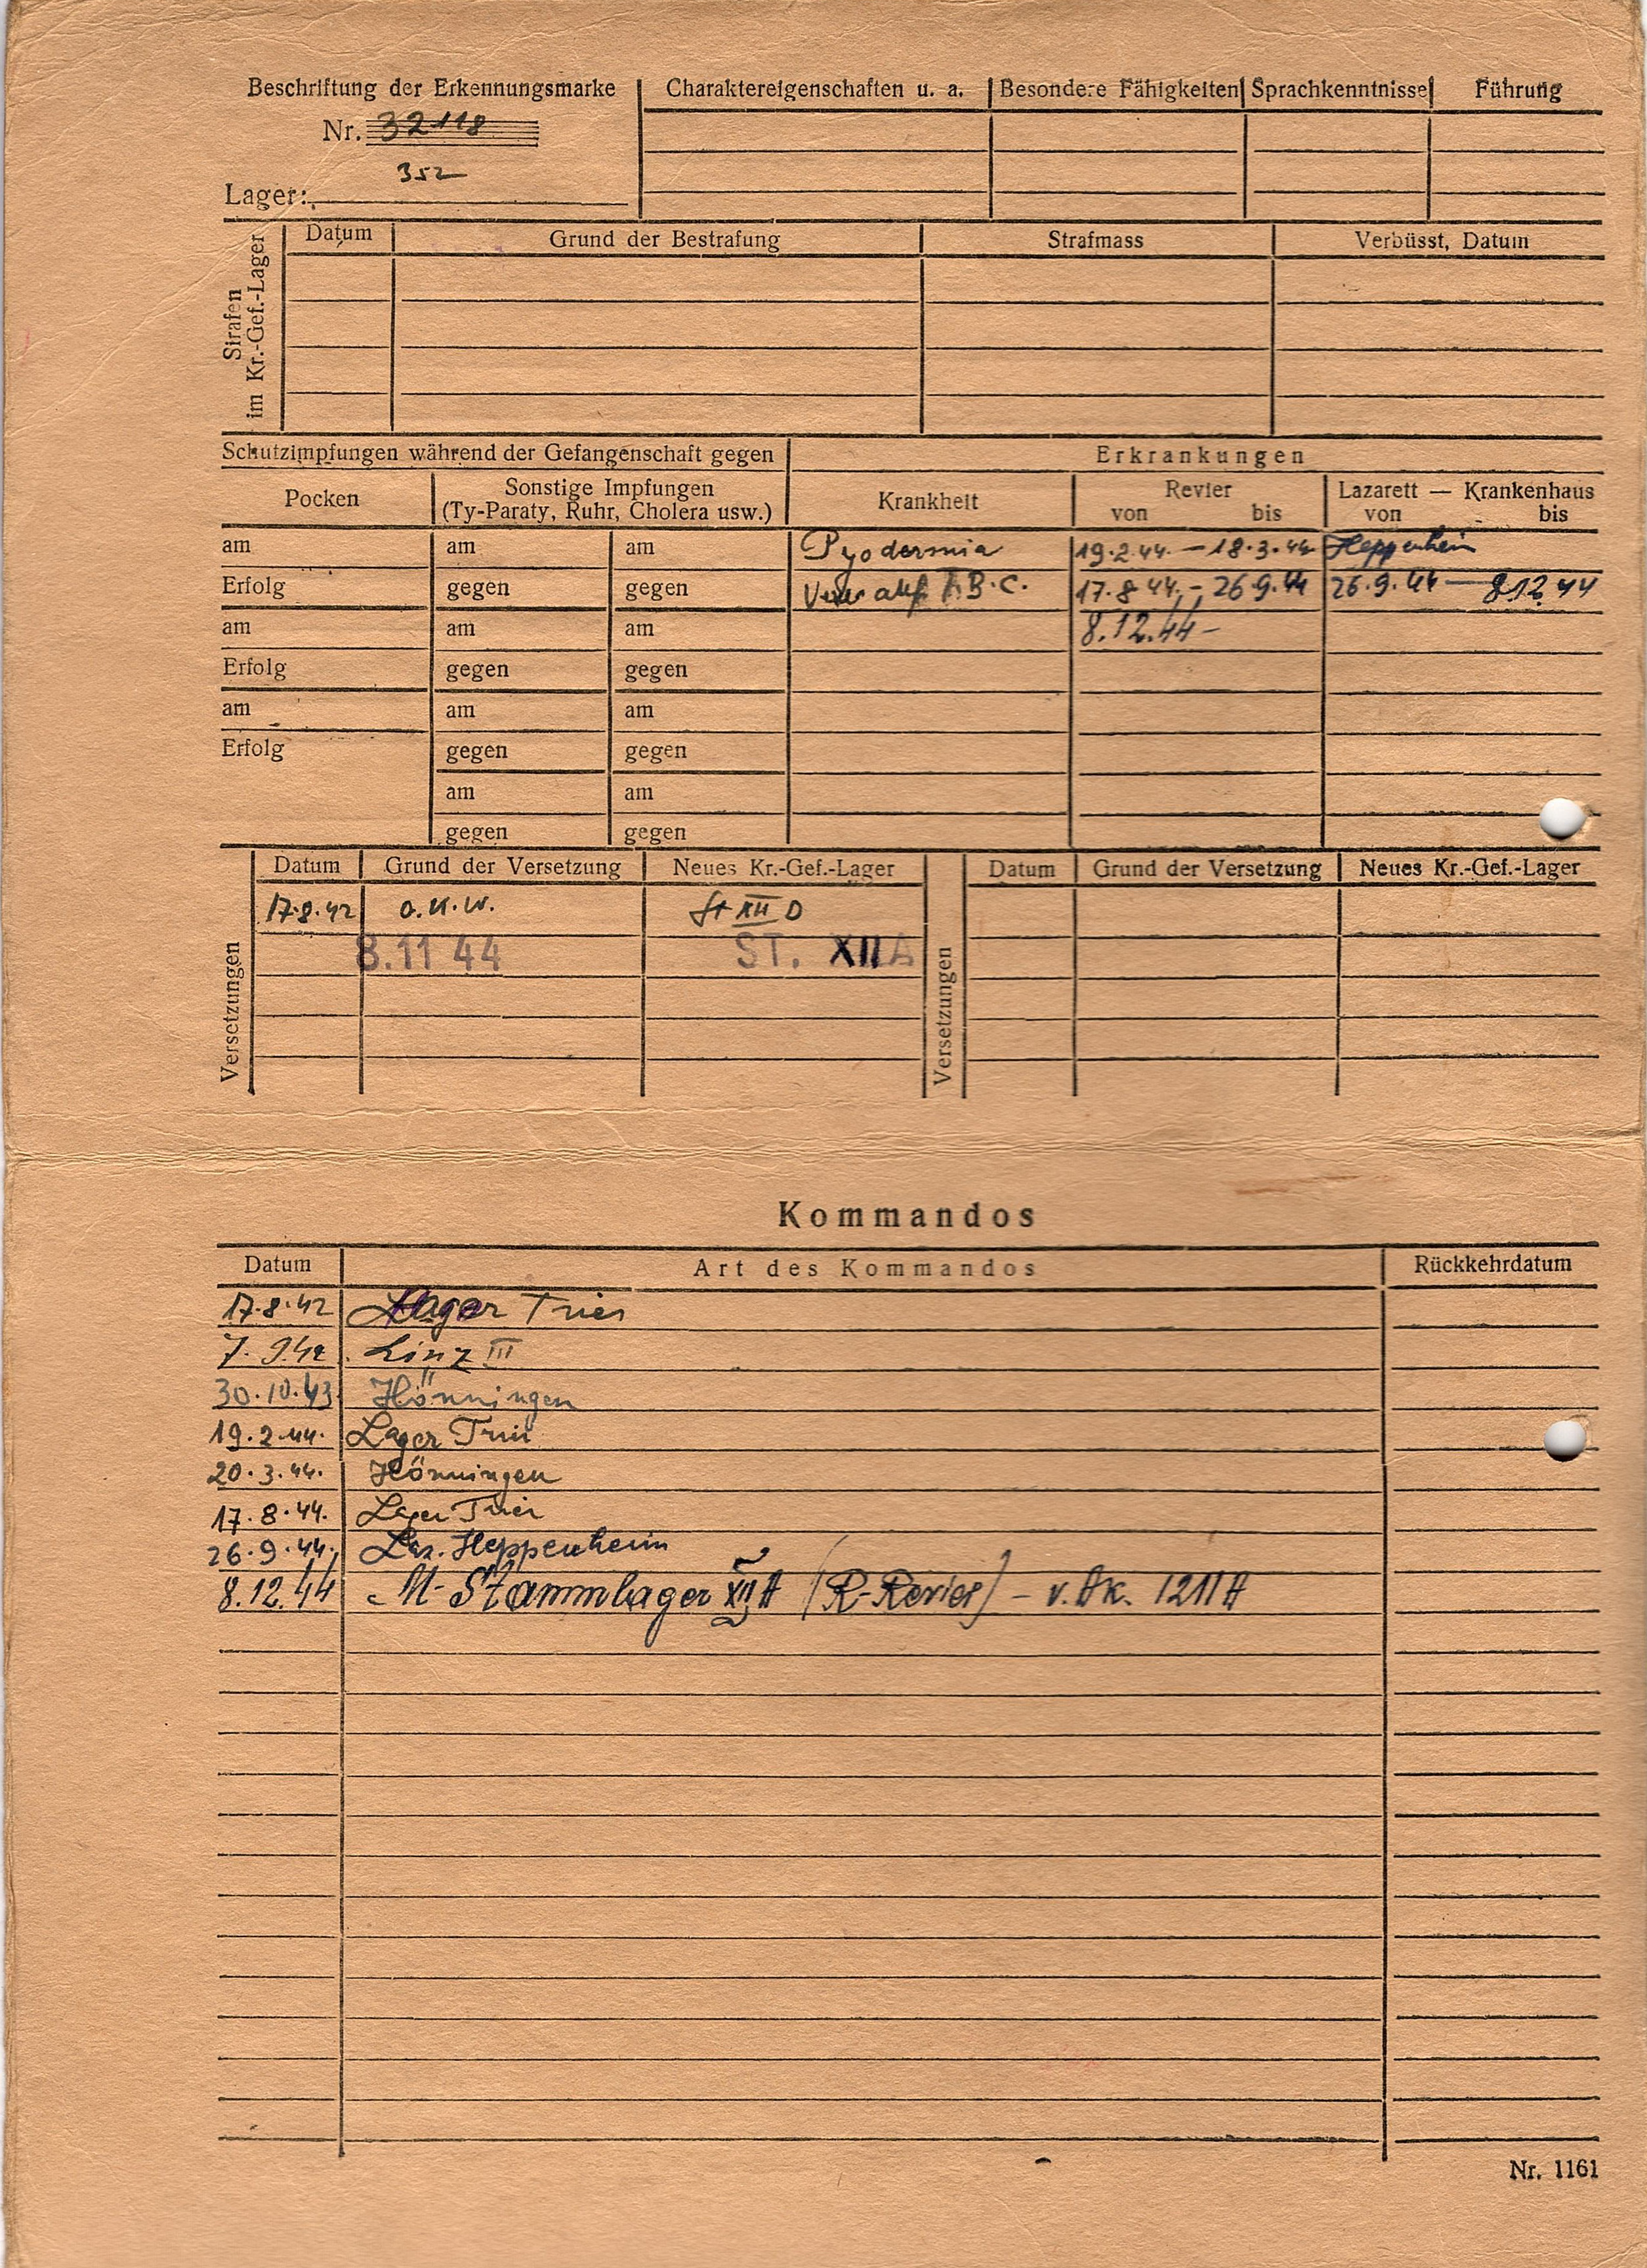 Beschriftung der Erkennungsmarke Charaktereigenschaften u. a. Besondere Fähigkeiten Sprachkenntnisse Führung
Nr. 32118
352
Lager:
Strafen
im Kr.-Gef.-Lager
Datum Grund der Bestrafung Strafmass Verbüsst, Datum
Schutzimpfungen während der Gefangenschaft gegen Erkrankungen
Pocken Sonstige Impfungen Krankheit Revier Lazarett — Krankenhaus
(Ty-Paraty, Ruhr, Cholera usw.) von bis von bis
am am am Pyodermia 19.2.44. — 18.3.44 Heppenheim
Erfolg gegen gegen auf T.B.C. 17.8.44. - 26.9.44 26.9.44 — 8.12.44
am am am 8.12.44 -
Erfolg gegen gegen
am am am
Erfolg gegen gegen
am am
gegen gegen
Versetzungen
Datum Grund der Versetzung Neues Kr.-Gef.-Lager
17.8.42 O.K.W. St XII D
8.11 44 ST. XII A
Versetzungen
Datum Grund der Versetzung Neues Kr.-Gef.-Lager
Kommandos
Datum Art des Kommandos Rückkehrdatum
17.8.42 Lager Trier
7.9.42 Linz III
30.10.43 Hönningen
19.2.44. Lager Trier
20.3.44. Hönningen
17.8.44. Lager Trier
26.9.44. Laz. Heppenheim
8.12.44 M-Stammlager XII A (R-Revier) - v. Ak. 1211A
Nr. 1161